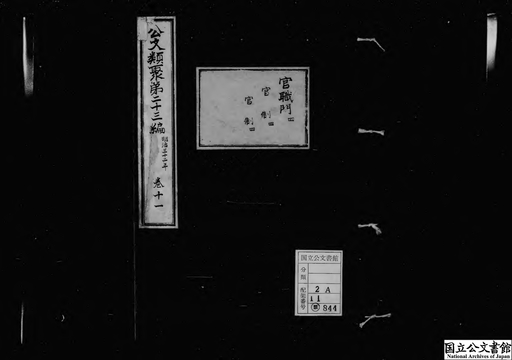 公文類聚第二十三編
明治三十二年
巻十一
官職門二
官制二
官制三
国立公文書館
分類
配架番号
2A
11
類
844
国立公文書館
National Archives of Japan